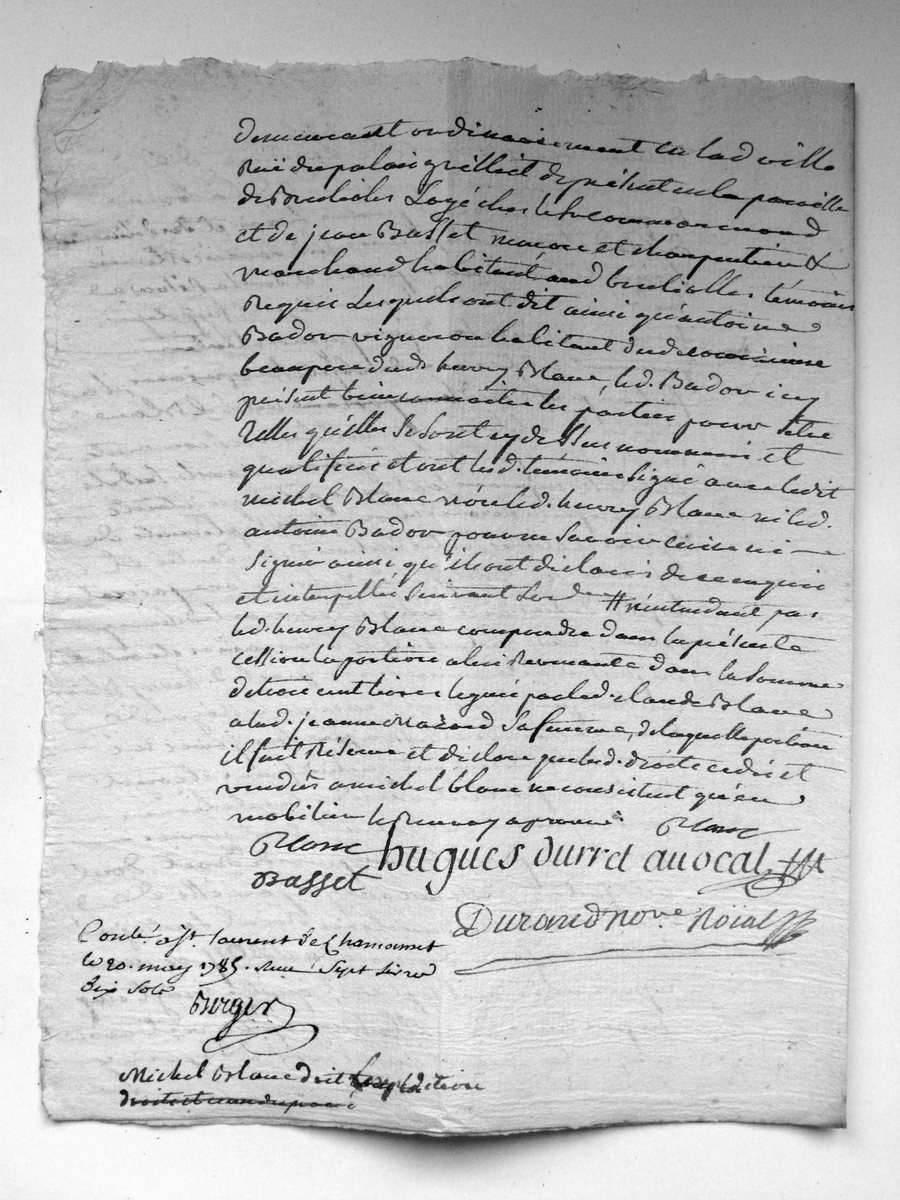 demeurant ordinairement en lad ville
Ruë du palais grillet de présent en la paroisse
de Brulioles Logé chez le Sr commarmond
et de jean Basset maçon et charpentier &
marchand habitant aud brulliolle, témoins
Requis Lesquels ont dit ainsi qu'antoine
Badov vigneron habitant dud
beaupere dud henry Blanc, led. Badov icy
présent bien connoitre les parties pour etre
telles qu'elles se sont cy dessus nommées et
qualifiées et ont lesd. témoins signé avec ledit
michel Blanc non led. henry Blanc ni led.
antoine Badov pour ne savoir écrire ni
signer ainsi qu'ils ont déclaré de ce enquis
et interpellés suivant Lord # n'entendant pas
led. henry Blanc comprendre dans la présente
cession la portion a lui Revenante dans la somme
de trois cent livres leguée par led. claude Blanc
a lad. jeanne sa femme, de laquelle portion
il fait Réserve et déclare que lesd. droits cedés et
vendus a michel blanc ne consistent qu'en
mobilier le Renvoy aprouvé. Blanc
Blanc hugues durret avocat
Basset
Durand nore Roial
Conlé. a St. laurent de Chamousset
le 20. may 1785. Reçu Sept livres
dix sols
Burger
Michel Blanc doit Lexpedition